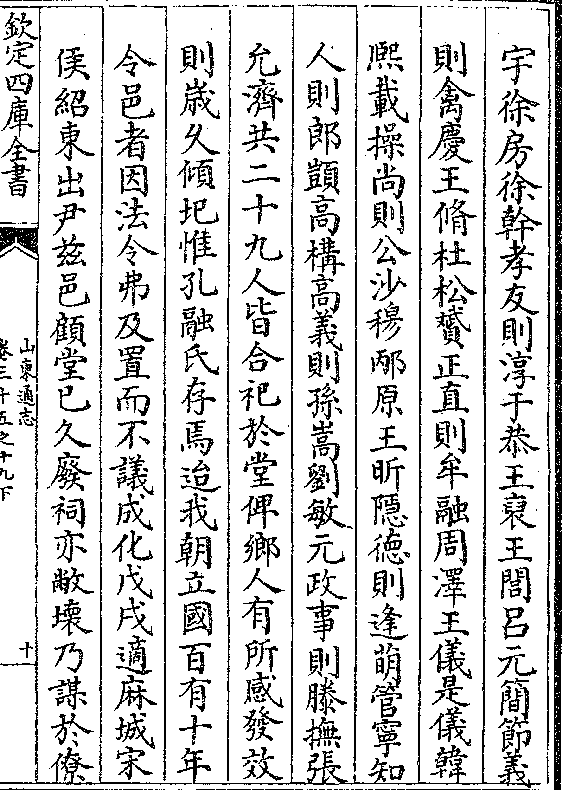 宇徐房徐幹孝友則淳于恭王裒王閭呂元簡節義
則禽慶王脩杜松贇正直則牟融周澤王儀是儀韓
熈載操尚則公沙穆邴原王昕隱德則逢萌管寧知
人則郎顗高構高義則孫嵩劉敏元政事則滕撫張
允濟共二十九人皆合祀於堂俾鄉人有所感發效
則歳乆傾圮惟孔融氏存焉迨我朝立國百有十年
令邑者因法令弗及置而不議成化戊戌適麻城宋
侯紹東出尹兹邑顧堂已久廢祠亦敝壊乃謀於僚
欽定四庫全書
山東通志
卷三十五之十九下
十